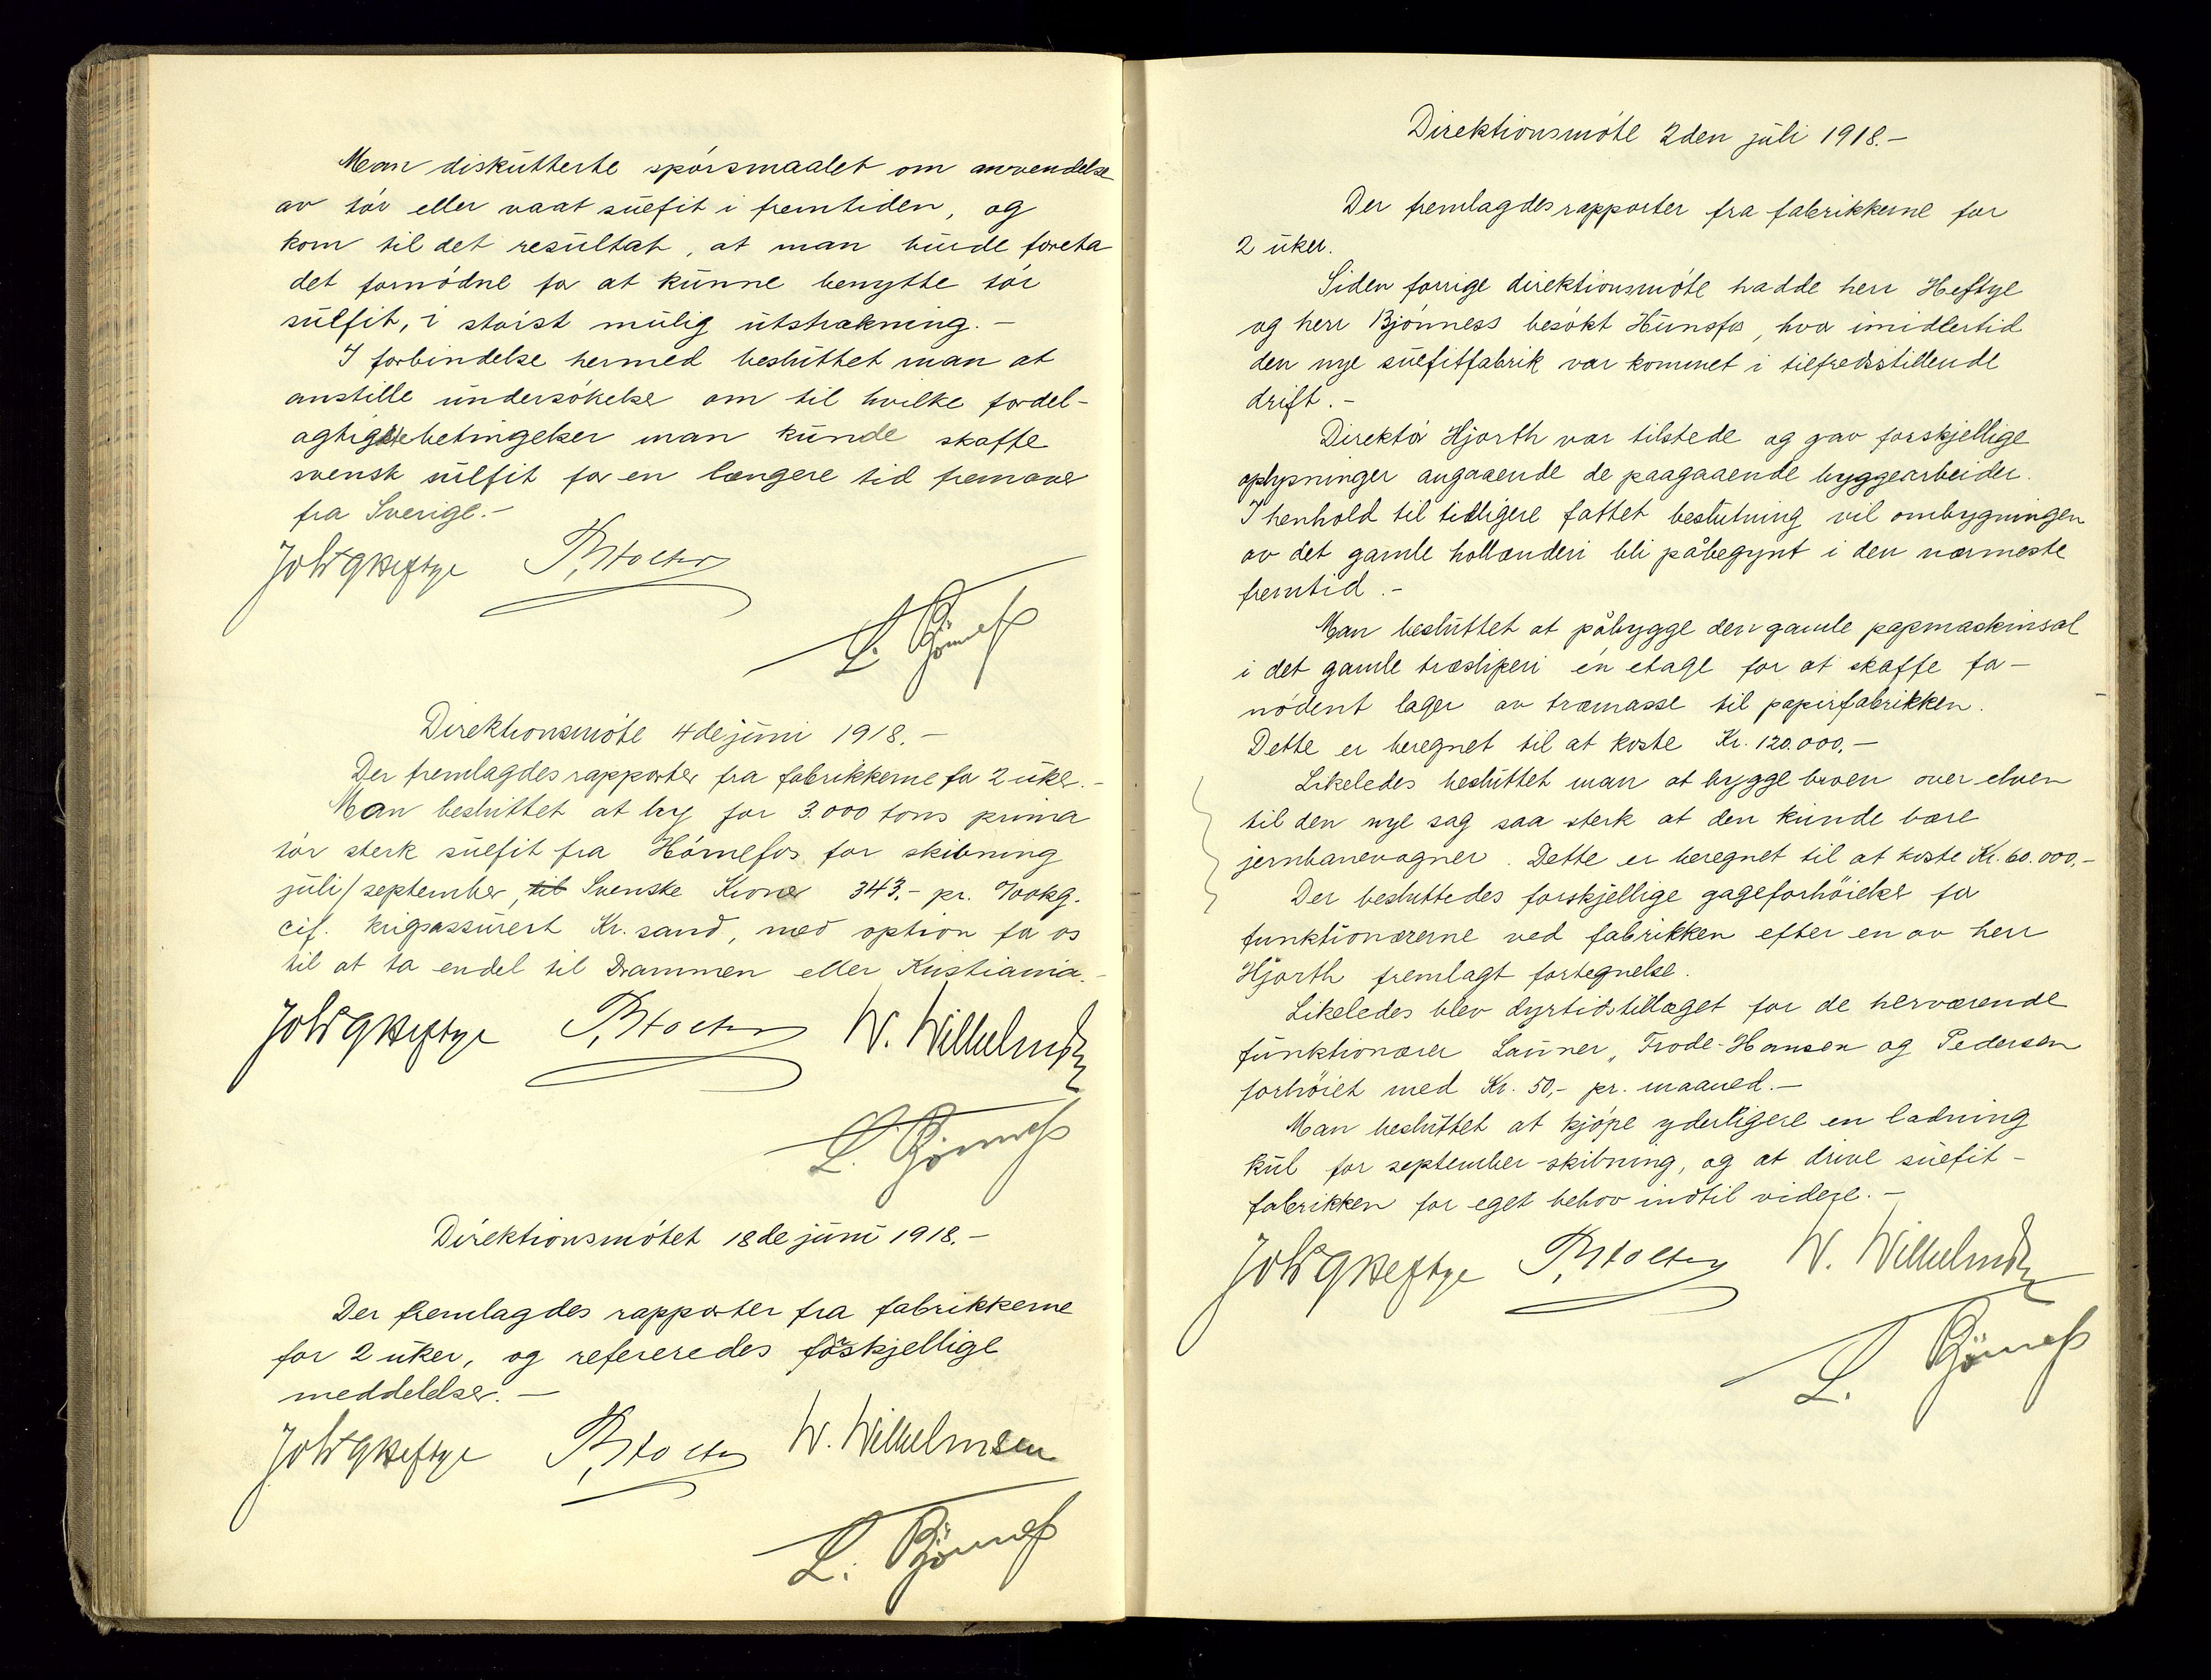 Man diskutterte spörsmaalet om anvendelse
av tör eller vaat sulfit i fremtiden, og
kom til det resultat, at man burde foreta
det fornödne for at kunne benytte tör
sulfit, i störst mulig utstrækning.-
I forbindelse hermed besluttet man at
anstille undersökelse om til hvilke fordel-
agtigste betingelser man kunde skaffe
svensk sulfit for en længere tid fremover
fra Sverige.-
Joh G Heftye P. Stolten
L. Bjönness
Direktionsmöte 4de juni 1918.-
Der fremlagdes rapporter fra fabrikkerne for 2 uker.-
Man besluttet at by for 3.000 tons prima
tör sterk sulfit fra Hörnefos for skibning
juli/september, til Svenske Kroner 343.- pr. 1000kg.
cif. krigsassurert Kr.sand, med option for os
til at ta endel til Drammen eller Kristiania.-
Joh G Heftye P. Stolten W. Wilhelmsen
L. Bjönness
Direktionsmötet 18de juni 1918.-
Der fremlagdes rapporter fra fabrikkerne
for 2 uker, og refereredes forskjellige
meddelelser.-
Joh G Heftye P. Stolten W. Wilhelmsen
L. Bjönness
Direktionsmöte 2den juli 1918.-
Der fremlagdes rapporter fra fabrikkerne for
2 uker.
Siden forrige direktionsmöte hadde herr Heftye
og herr Bjönness besökt Hunsfos, hvor imidlertid
den nye sulfitfabrik var kommet i tilfredsstillende
drift.-
Direktör Hjorth var tilstede og gav forskjellige
oplysninger angaaende de paagaaende byggearbeider.
I henhold til tidligere fattet beslutning vil ombygningen
av det gamle hollænderi bli påbegynt i den nærmeste
fremtid.-
Man besluttet at påbygge den gamle papmaskinsal
i det gamle træsliperi én etage for at skaffe for-
nödent lager av træmasse til papirfabrikken.
Dette er beregnet til at koste Kr. 120.000.-
Likeledes besluttet man at bygge broen over elven
til den nye sag saa sterk at den kunde bære
jernbanevogner. Dette er beregnet til at koste Kr. 60.000,-
Der besluttedes forskjellige gageforhöielser for
funktionærerne ved fabrikken efter en av herr
Hjorth fremlagt fortegnelse.
Likeledes blev dyrtidstillæget for de herværende
funktionærer Launer, Frode-Hansen og Pedersen
forhöiet med Kr. 50,- pr. maaned.-
Man besluttet at kjöpe yderligere en ladning
kul for september-skibning, og at drive sulfit-
fabrikken for eget behov indtil videre.-
Joh G Heftye P. Stolten W. Wilhelmsen
L. Bjönness